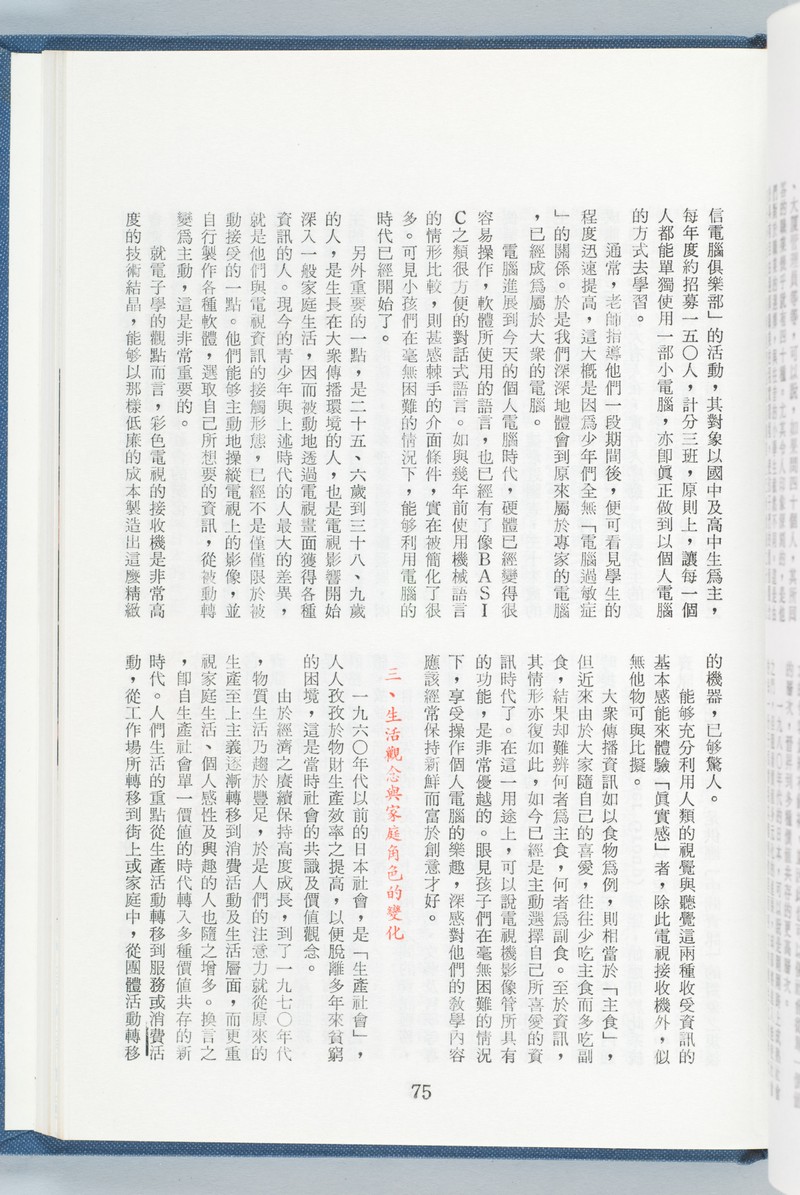 信電腦俱樂部」的活動，其對象以國中及高中生爲主，
每年度約招募一五〇人，計分三班，原則上，讓每一個
人都能單獨使用一部小電腦，亦卽眞正做到以個人電腦
的方式去學習。
通常，老師指導他們一段期間後，便可看見學生的
程度迅速提高，這大概是因爲少年們全無「電腦過敏症
」的關係。於是我們深深地體會到原來屬於專家的電腦
，已經成爲屬於大衆的電腦。
電腦進展到今天的個人電腦時代，硬體已經變得很
容易操作，軟體所使用的語言，也已經有了像BASI
C之類很方便的對話式語言。如與幾年前使用機械語言
的情形比較，則甚感棘手的介面條件，實在被簡化了很
多。可見小孩們在毫無困難的情況下，能够利用電腦的
時代已經開始了。
另外重要的一點，是二十五、六歲到三十八、九歲
的人，是生長在大衆傳播環境的人，也是電視影響開始
深入一般家庭生活，因而被動地透過電視畫面獲得各種
資訊的人。現今的青少年與上述時代的人最大的差異，
就是他們與電視資訊的接觸形態，已經不是僅僅限於被
動接受的一點。他們能够主動地操縱電視上的影像，並
自行製作各種軟體，選取自己所想要的資訊，從被動轉
變爲主動，這是非常重要的。
就電子學的觀點而言，彩色電視的接收機是非常高
度的技術結晶，能够以那樣低廉的成本製造出這麼精緻
的機器，已够驚人。
能够充分利用人類的視覺與聽覺這兩種收受資訊的
基本感能來體驗「眞實感」者，除此電視接收機外，似
無他物可與比擬。
大衆傳播資訊如以食物爲例，則相當於「主食」，
但近來由於大家隨自己的喜愛，往往少吃主食而多吃副
食，結果却難辨何者爲主食，何者爲副食。至於資訊，
其情形亦復如此，如今已經是主動選擇自己所喜愛的資
訊時代了。在這一用途上，可以說電視機影像管所具有
的功能，是非常優越的。眼見孩子們在毫無困難的情況
下，享受操作個人電腦的樂趣，深感對他們的教學內容
應該經常保持新鮮而富於創意才好。
三、生活觀念與家庭角色的變化
一九六〇年代以前的日本社會，是「生產社會」，
人人孜孜於物財生產效率之提高，以便脫離多年來貧窮
的困境，這是當時社會的共識及價值觀念。
由於經濟之賡續保持高度成長，到了一九七〇年代
，物質生活乃趨於豐足，於是人們的注意力就從原來的
生產至上主義逐漸轉移到消費活動及生活層面，而更重
視家庭生活、個人感性及興趣的人也隨之增多。換言之
，卽自生產社會單一價値的時代轉入多種價値共存的新
時代。人們生活的重點從生產活動轉移到服務或消費活
動，從工作場所轉移到街上或家庭中，從團體活動轉移
75